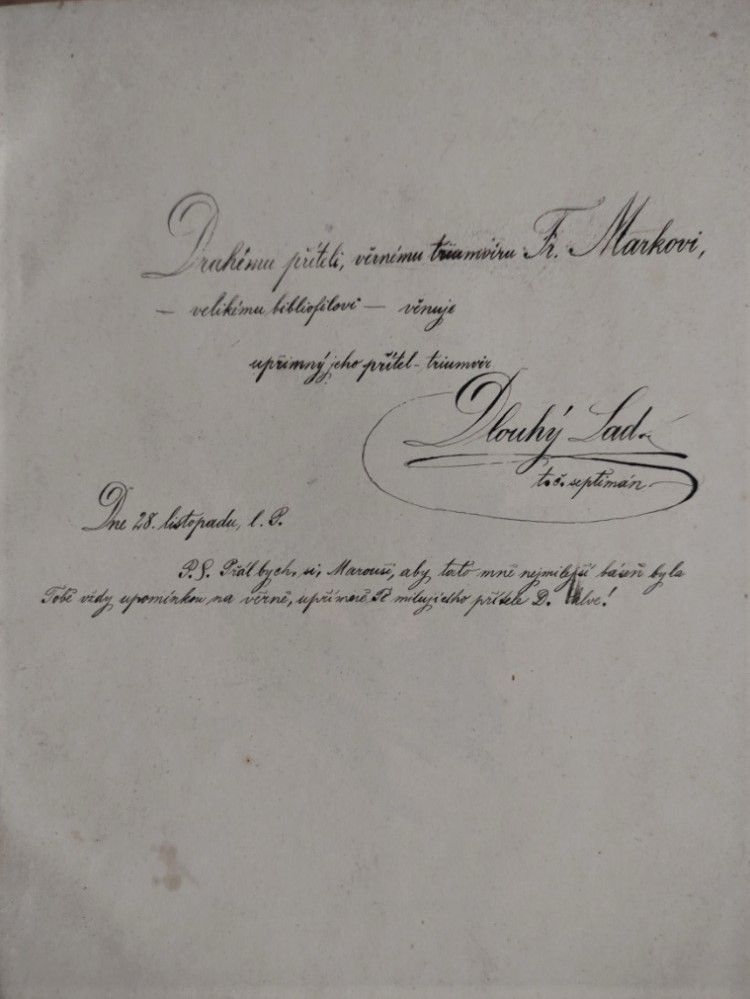 Drahému příteli, věrnému triumvíru Fr. Markovi,
— velikému bibliofilovi — věnuje
upřímný jeho přítel-triumvir
Dlouhý Lad.
t. č. septimán
Dne 28. listopadu, l. P.
P.S. Přál bych si, Marouši, aby tato mně nejmilejší báseň byla
Tobě vždy upomínkou na věrně, upřímně Tě milujícího přítele D. Salve!